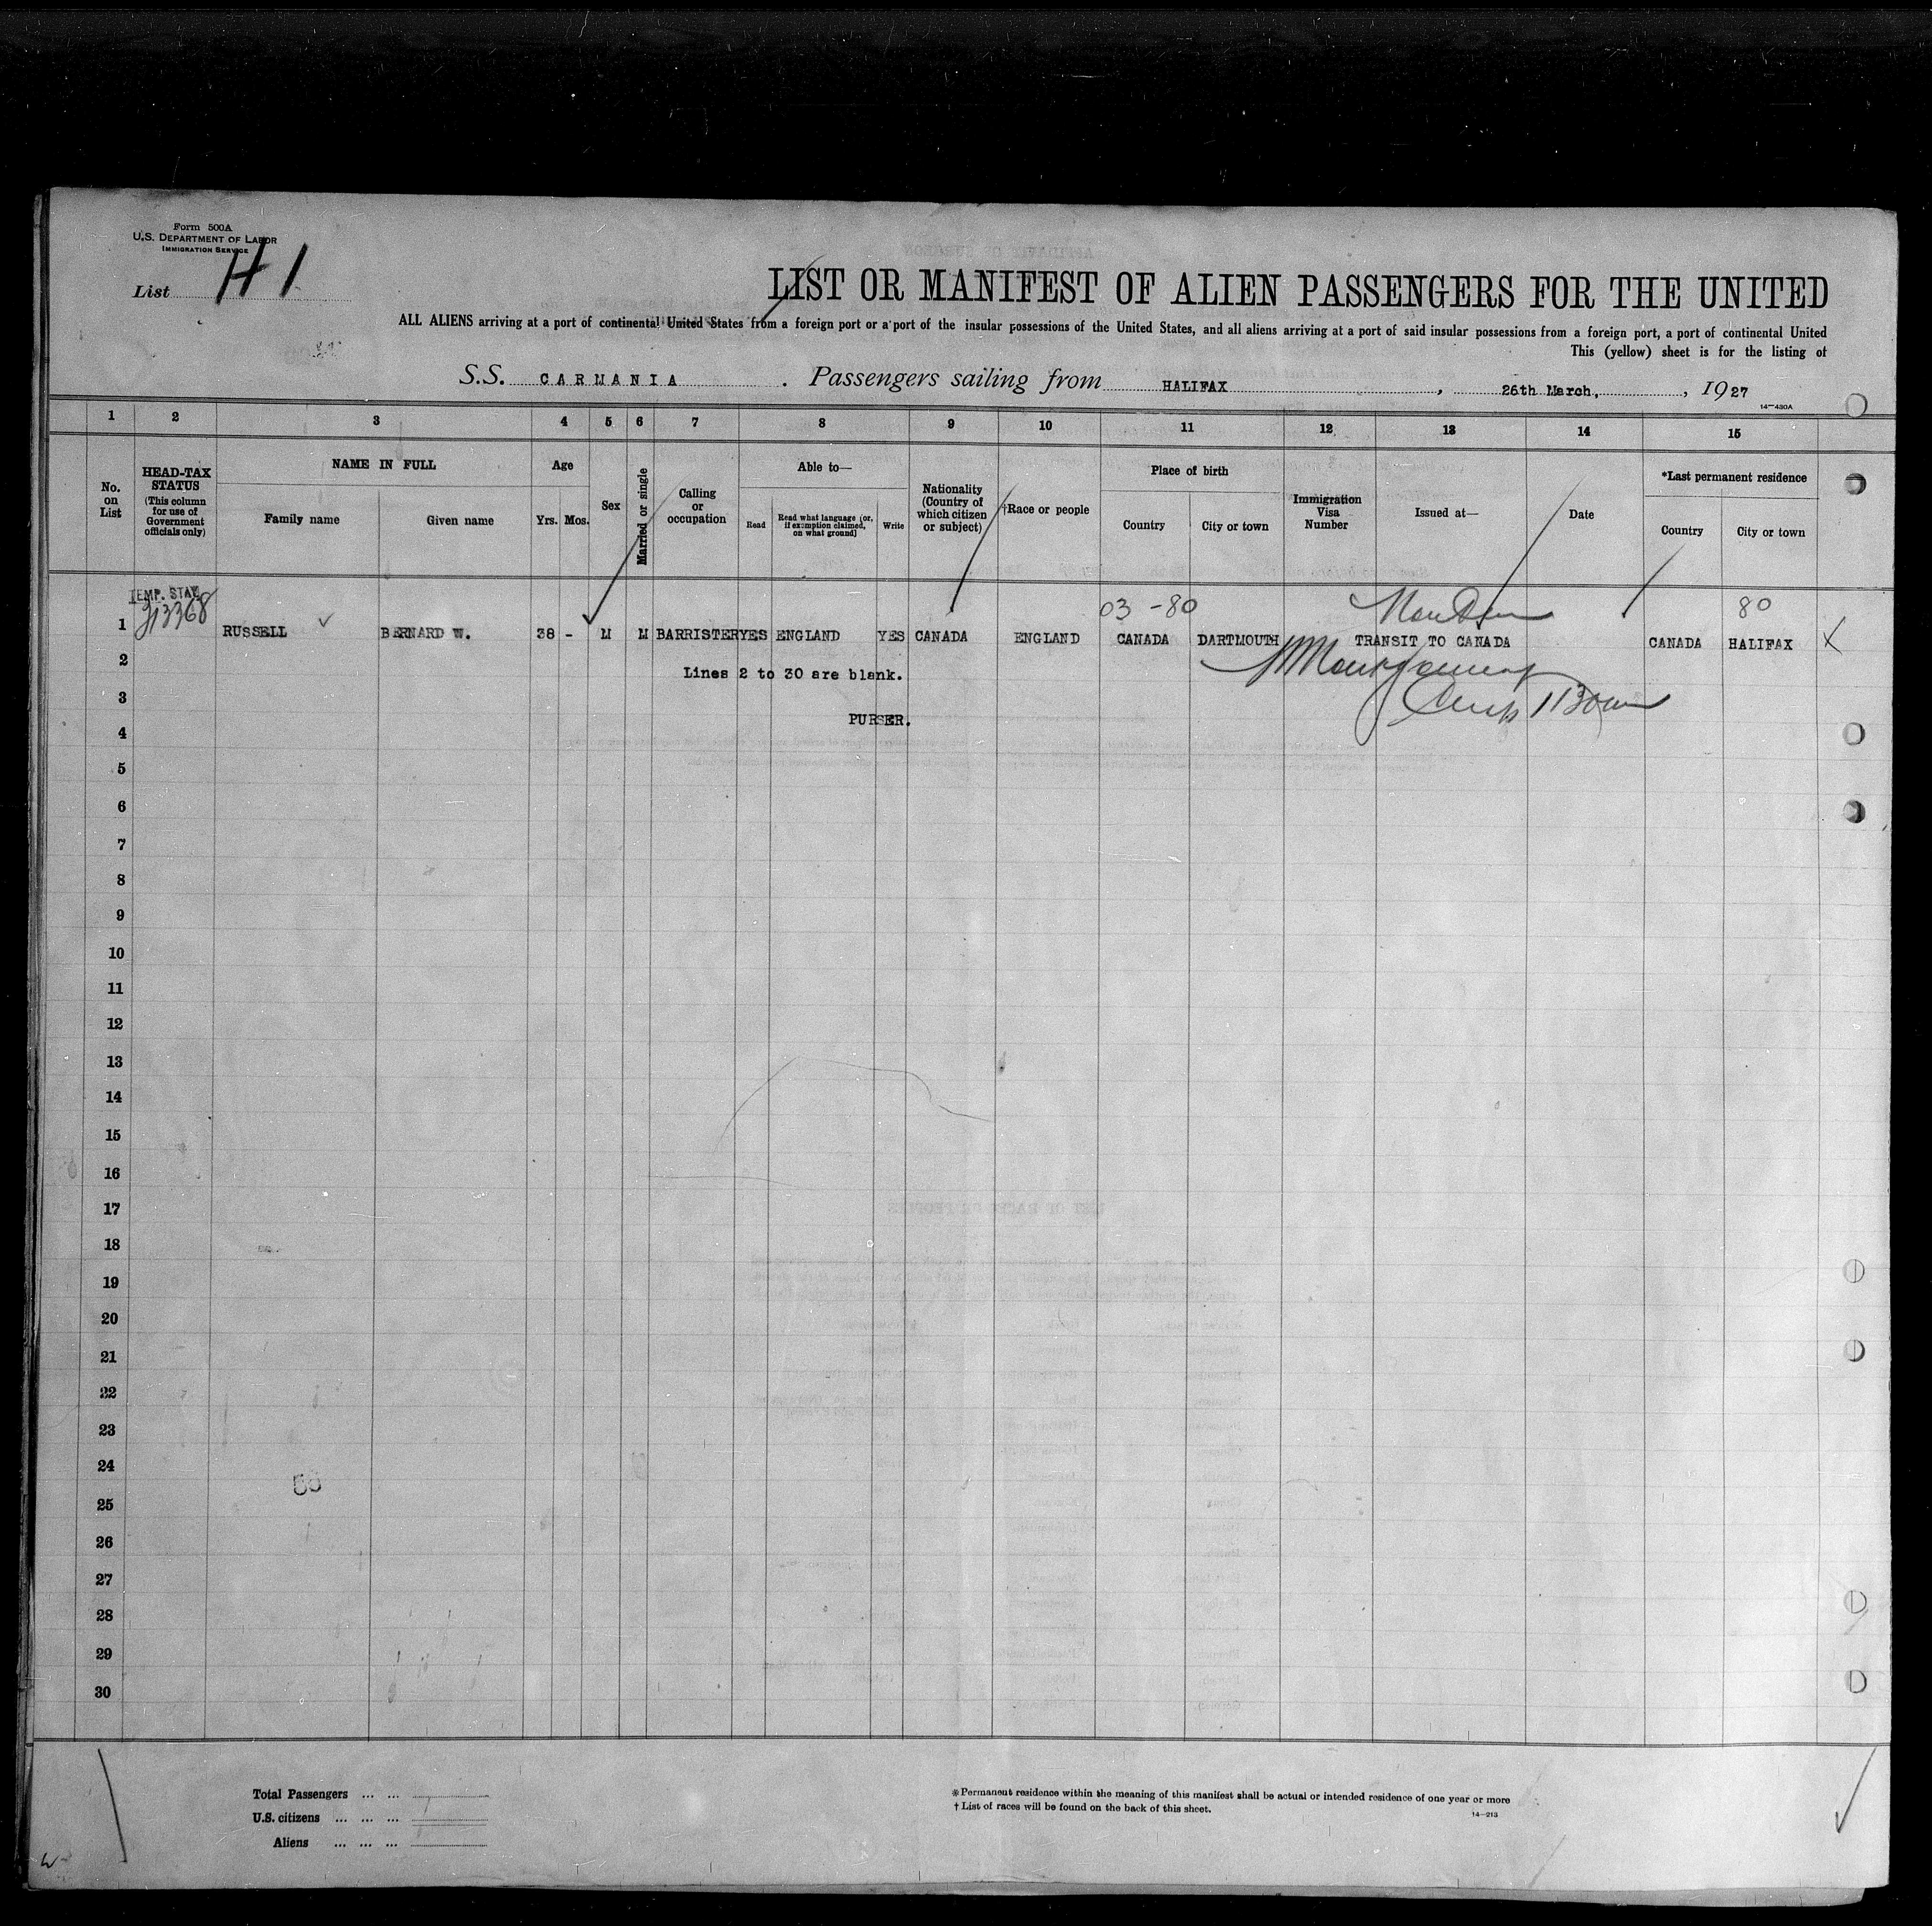 Form 500A
U.S. DEPARTMENT OF LABOR
IMMIGRATION SERVICE
List H1
LIST OR MANIFEST OF ALIEN PASSENGERS FOR THE UNITED
ALL ALIENS arriving at a port of continental United States from a foreign port or a port of the insular possessions of the United States, and all aliens arriving at a port of said insular possessions from a foreign port, a port of continental United
This (yellow) sheet is for the listing of
S.S. CARMANIA. Passengers sailing from HALIFAX, 26th March, , 1927
14—430A
1 2 3 4 5 6 7 8 9 10 11 12 13 14 15
No. on List
HEAD-TAX STATUS (This column for use of Government officials only)
NAME IN FULL
Family name
Given name
Age
Yrs. Mos.
Sex
Married or single
Calling or occupation
Able to—
Read
Read what language (or, if exemption claimed, on what ground)
Write
Nationality (Country of which citizen or subject)
†Race or people
Place of birth
Country
City or town
Immigration Visa Number
Issued at—
Date
*Last permanent residence
Country
City or town
TEMP. STAY
03 -80
80
1 RUSSELL BERNARD W. 38 - M M BARRISTER YES ENGLAND YES CANADA ENGLAND CANADA DARTMOUTH TRANSIT TO CANADA CANADA HALIFAX X
2 Lines 2 to 30 are blank.
3
PURSER.
4
5
6
7
8
9
10
11
12
13
14
15
16
17
18
19
20
21
22
23
24
25
26
27
28
29
30
Total Passengers ... ...
U.S. citizens ... ... ...
Aliens ... ... ...
*Permanent residence within the meaning of this manifest shall be actual or intended residence of one year or more
†List of races will be found on the back of this sheet.
14—213